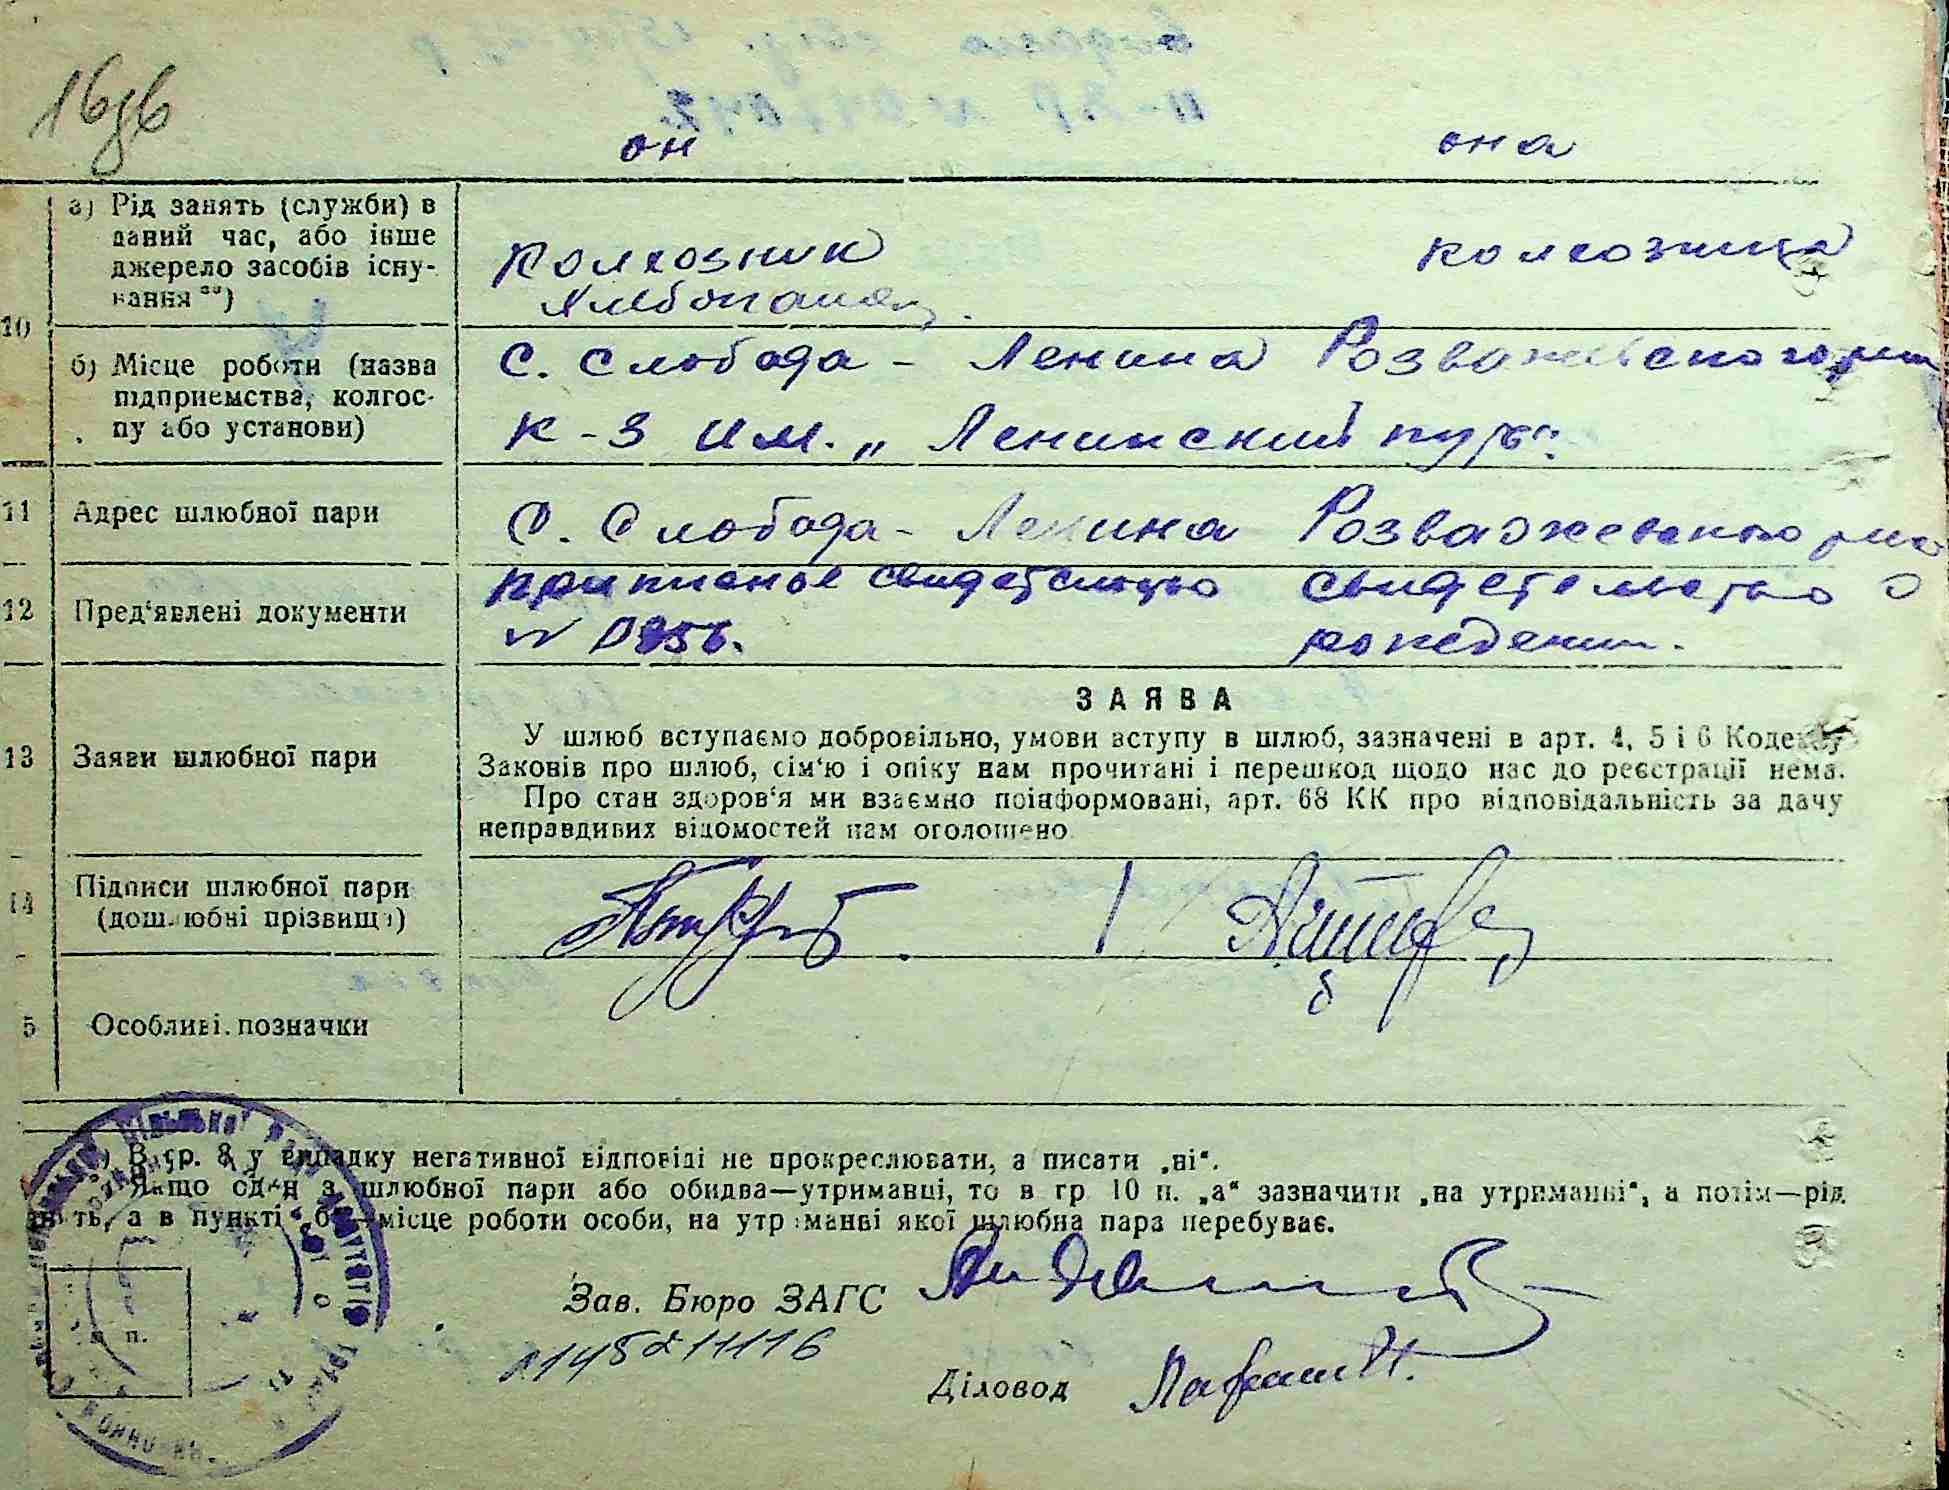 он она
10
а) Рід занять (служби) в
даний час, або інше
джерело засобів існу-
вання **)
колхозник колхозница
хлебопашец.
б) Місце роботи (назва
підприємства, колгос-
пу або установи)
с. Слобода - Ленина Розважевского р-на
к-з им. „Ленинский путь".
11 Адрес шлюбної пари
с. Слобода - Ленина Розважевского р-на
12 Пред'явлені документи
приписное свидетельство свидетельство о
рождении.
13 Заяви шлюбної пари
ЗАЯВА
У шлюб вступаємо добровільно, умови вступу в шлюб, зазначені в арт. 4, 5 і 6 Кодексу
Законів про шлюб, сім'ю і опіку нам прочитані і перешкод щодо нас до реєстрації нема.
Про стан здоров'я ми взаємно поінформовані, арт. 68 КК про відповідальність за дачу
неправдивих відомостей нам оголошено
14 Підписи шлюбної пари
(дошлюбні прізвища)
5 Особливі позначки
*) В гр. 8 у випадку негативної відповіді не прокреслювати, а писати „ні".
Якщо один з шлюбної пари або обидва—утриманці, то в гр 10 п. „а" зазначити „на утриманні", а потім—рід
занять, а в пункті „б"—місце роботи особи, на утриманні якої шлюбна пара перебуває.
Зав. Бюро ЗАГС
Діловод
п.